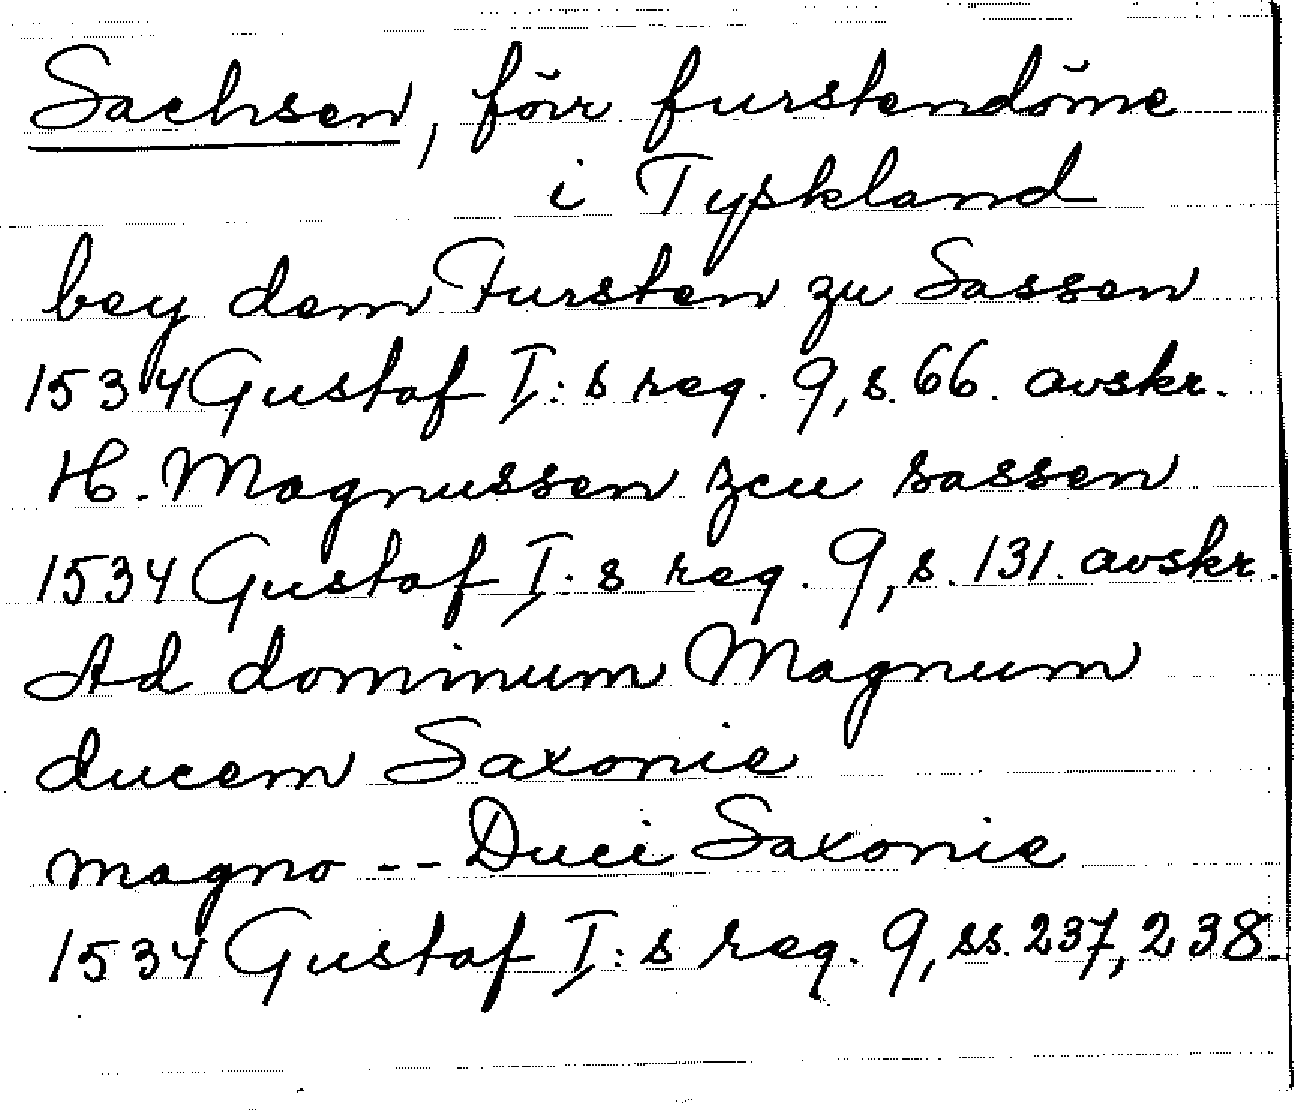 Sachsen, förr furstendöme
i Tyskland
bey dem Fursten zu Sassen
1534 Gustaf I:s reg. 9, s. 66. avskr.
H. Magnussen zcu sassen
1534 Gustaf I:s reg. 9, s. 131. avskr.
Ad dominum Magnum
ducem Saxonie
magno -- Duci Saxonie
1534 Gustaf I:s reg. 9, ss. 237, 238.